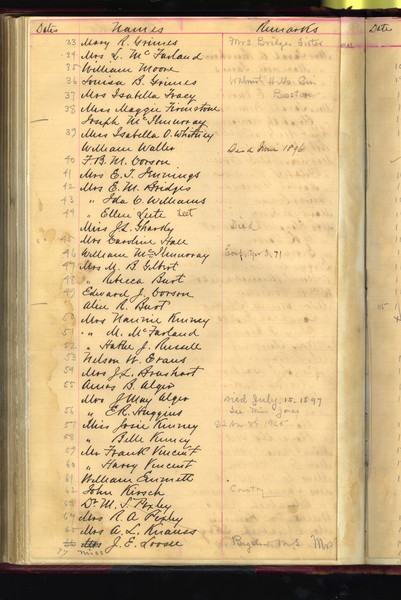 Dates Names Remarks Date
33 Mary R. Grimes Mrs Bridges Sister
34 Mrs L. McFarland
35 William Moore
36 Louisa B. Grimes Walnut Hills Cin
37 Mrs Isabella Tracy Boston
38 Miss Maggie
Joseph McIlmurray
39 Miss Isabella O. Whitney
William Waller Dead June 1896
40 F. B. M. Corson
41 Mrs E. T. Jennings
42 Mrs E. M. Bridges
43 " Ida C. Williams
44 " Ellen Leete Leet
Miss J. L. Died
45 Mrs Caroline Hale
46 William McIlmurray 71
47 Mrs M. B. Gilbert
48 " Rebecca Burt
49 Edward J. Corson
Alice R. Burt
Mrs Nannie Kinney
" M. McFarland
52 " Hattie J. Russell
53 Wilson W. Evans
54 Mrs J. L. Brashart
55 Amos B. Alger
Mrs J May Alger Died July 15. 1897
56 " E. R. Huggins See Miss Jones
57 Miss Josie Kinney 1925
58 " Belle Kinney
59 Mr Frank Vincent
60 " Harry Vincent
61 William Emmett
62 John Kirsch Country
63 Dr. M. S. Pixley
64 Mrs R. A. Pixley
65 Mrs A. L. Krauss
66 Mrs J. E. Loose
Miss